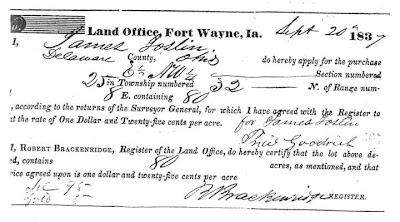 Land Office, Fort Wayne, Ia. Sept 20th 1837
I, James Joslin
Delaware County, Ohio do hereby apply for the purchase
E ½ NW ¼ Section numbered
25 in Township numbered 32 N. of Range num-
8 E. containing 80
, according to the returns of the Surveyor General, for which I have agreed with the Register to
at the rate of One Dollar and Twenty-five cents per acre. for James Joslin
Goodrich
I, ROBERT BRACKENRIDGE, Register of the Land Office, do hereby certify that the lot above de-
ed, contains 80 acres, as mentioned, and that
rice agreed upon is one dollar and twenty-five cents per acre
95 R Brackenridge REGISTER.
5